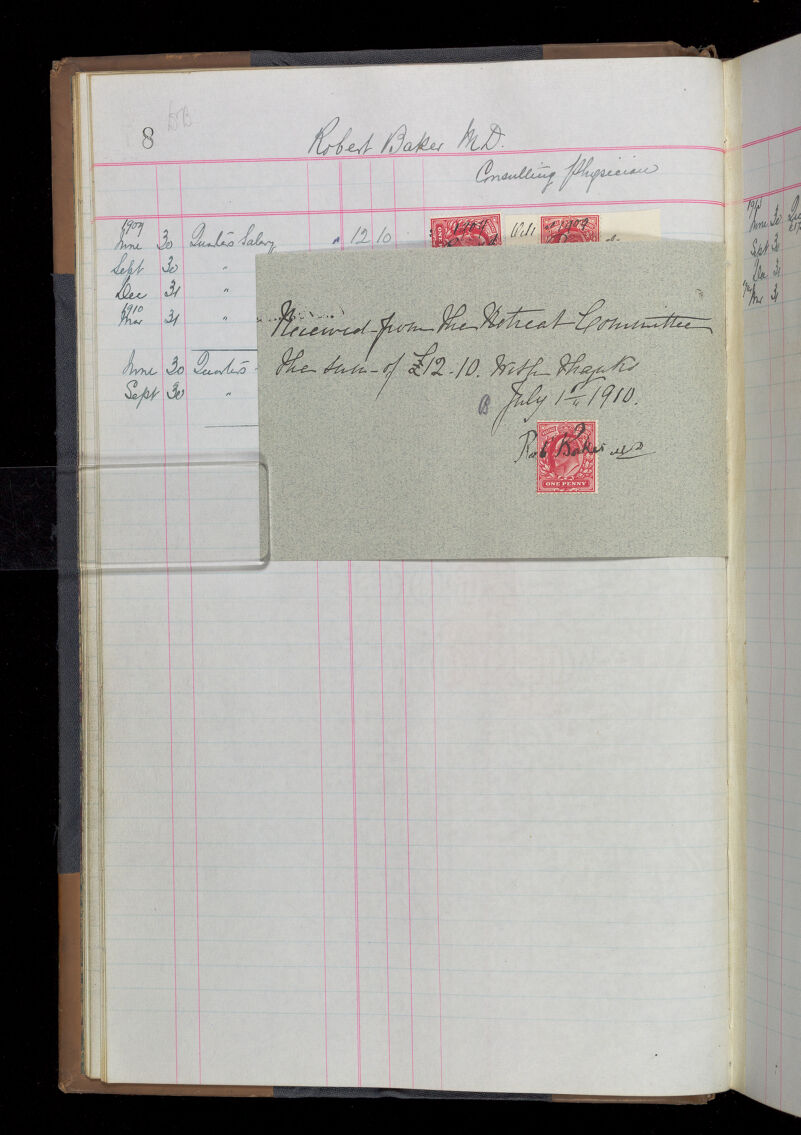 8 DB
Robert Baker M.D.
Consulting Physician
1909
June 30 Quarter's Salary " 12 10 1909 1909
Sept 30 "
Dec 31 "
1910
Mar 31 "
June 30 Quarter's
Sept 30 "
Received from the Retreat Committee
the sum of £12-10. With Thanks
B July 1st 1910.
Robt Baker MD
ONE PENNY
June 30
Sept 30
Dec 31
Mar 31